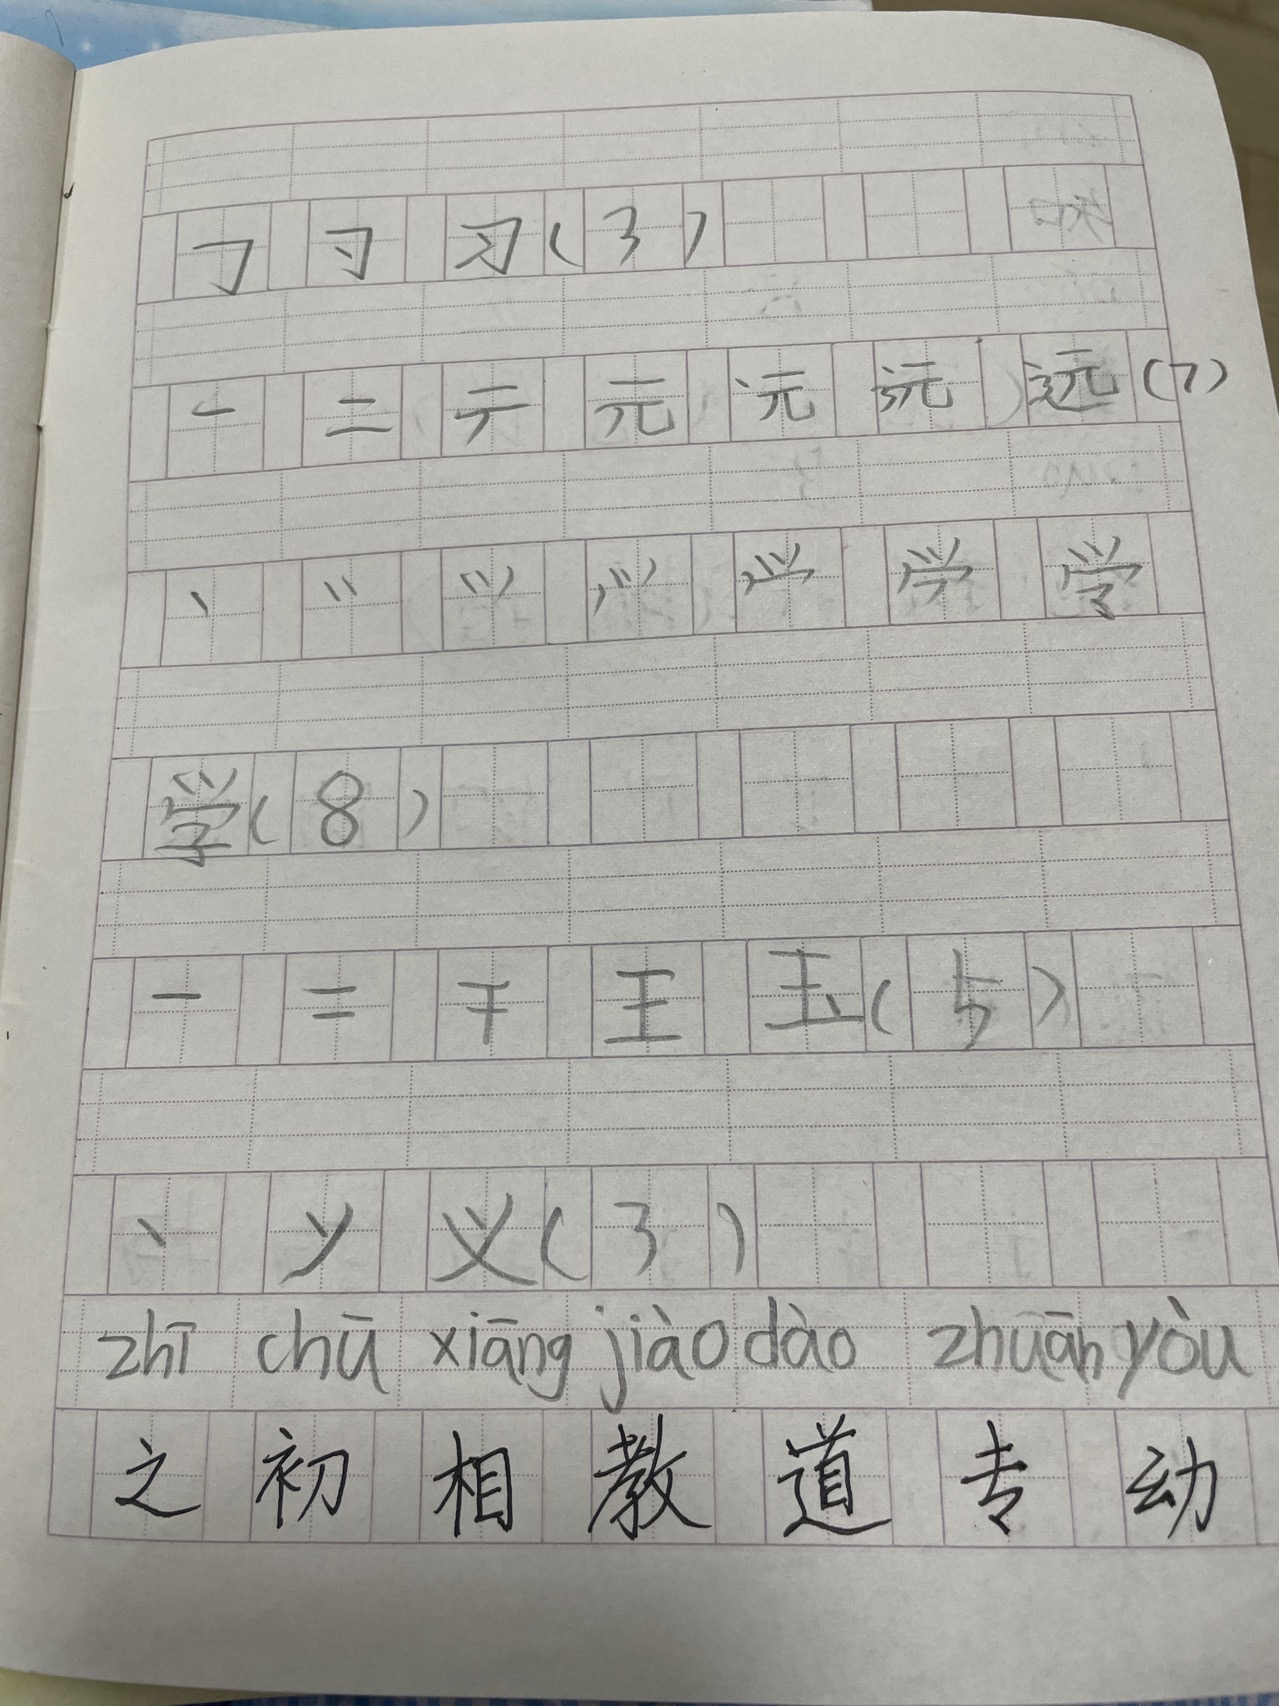 ㇆ 习 习(3)
一 二 テ 元 远 远 远(7)
丶 丷 ⺍ 学 学
学(8)
一 二 干 王 玉(5)
丶 丷 义(3)
zhī chū xiāng jiào dào zhuān yòu
之 初 相 教 道 专 动